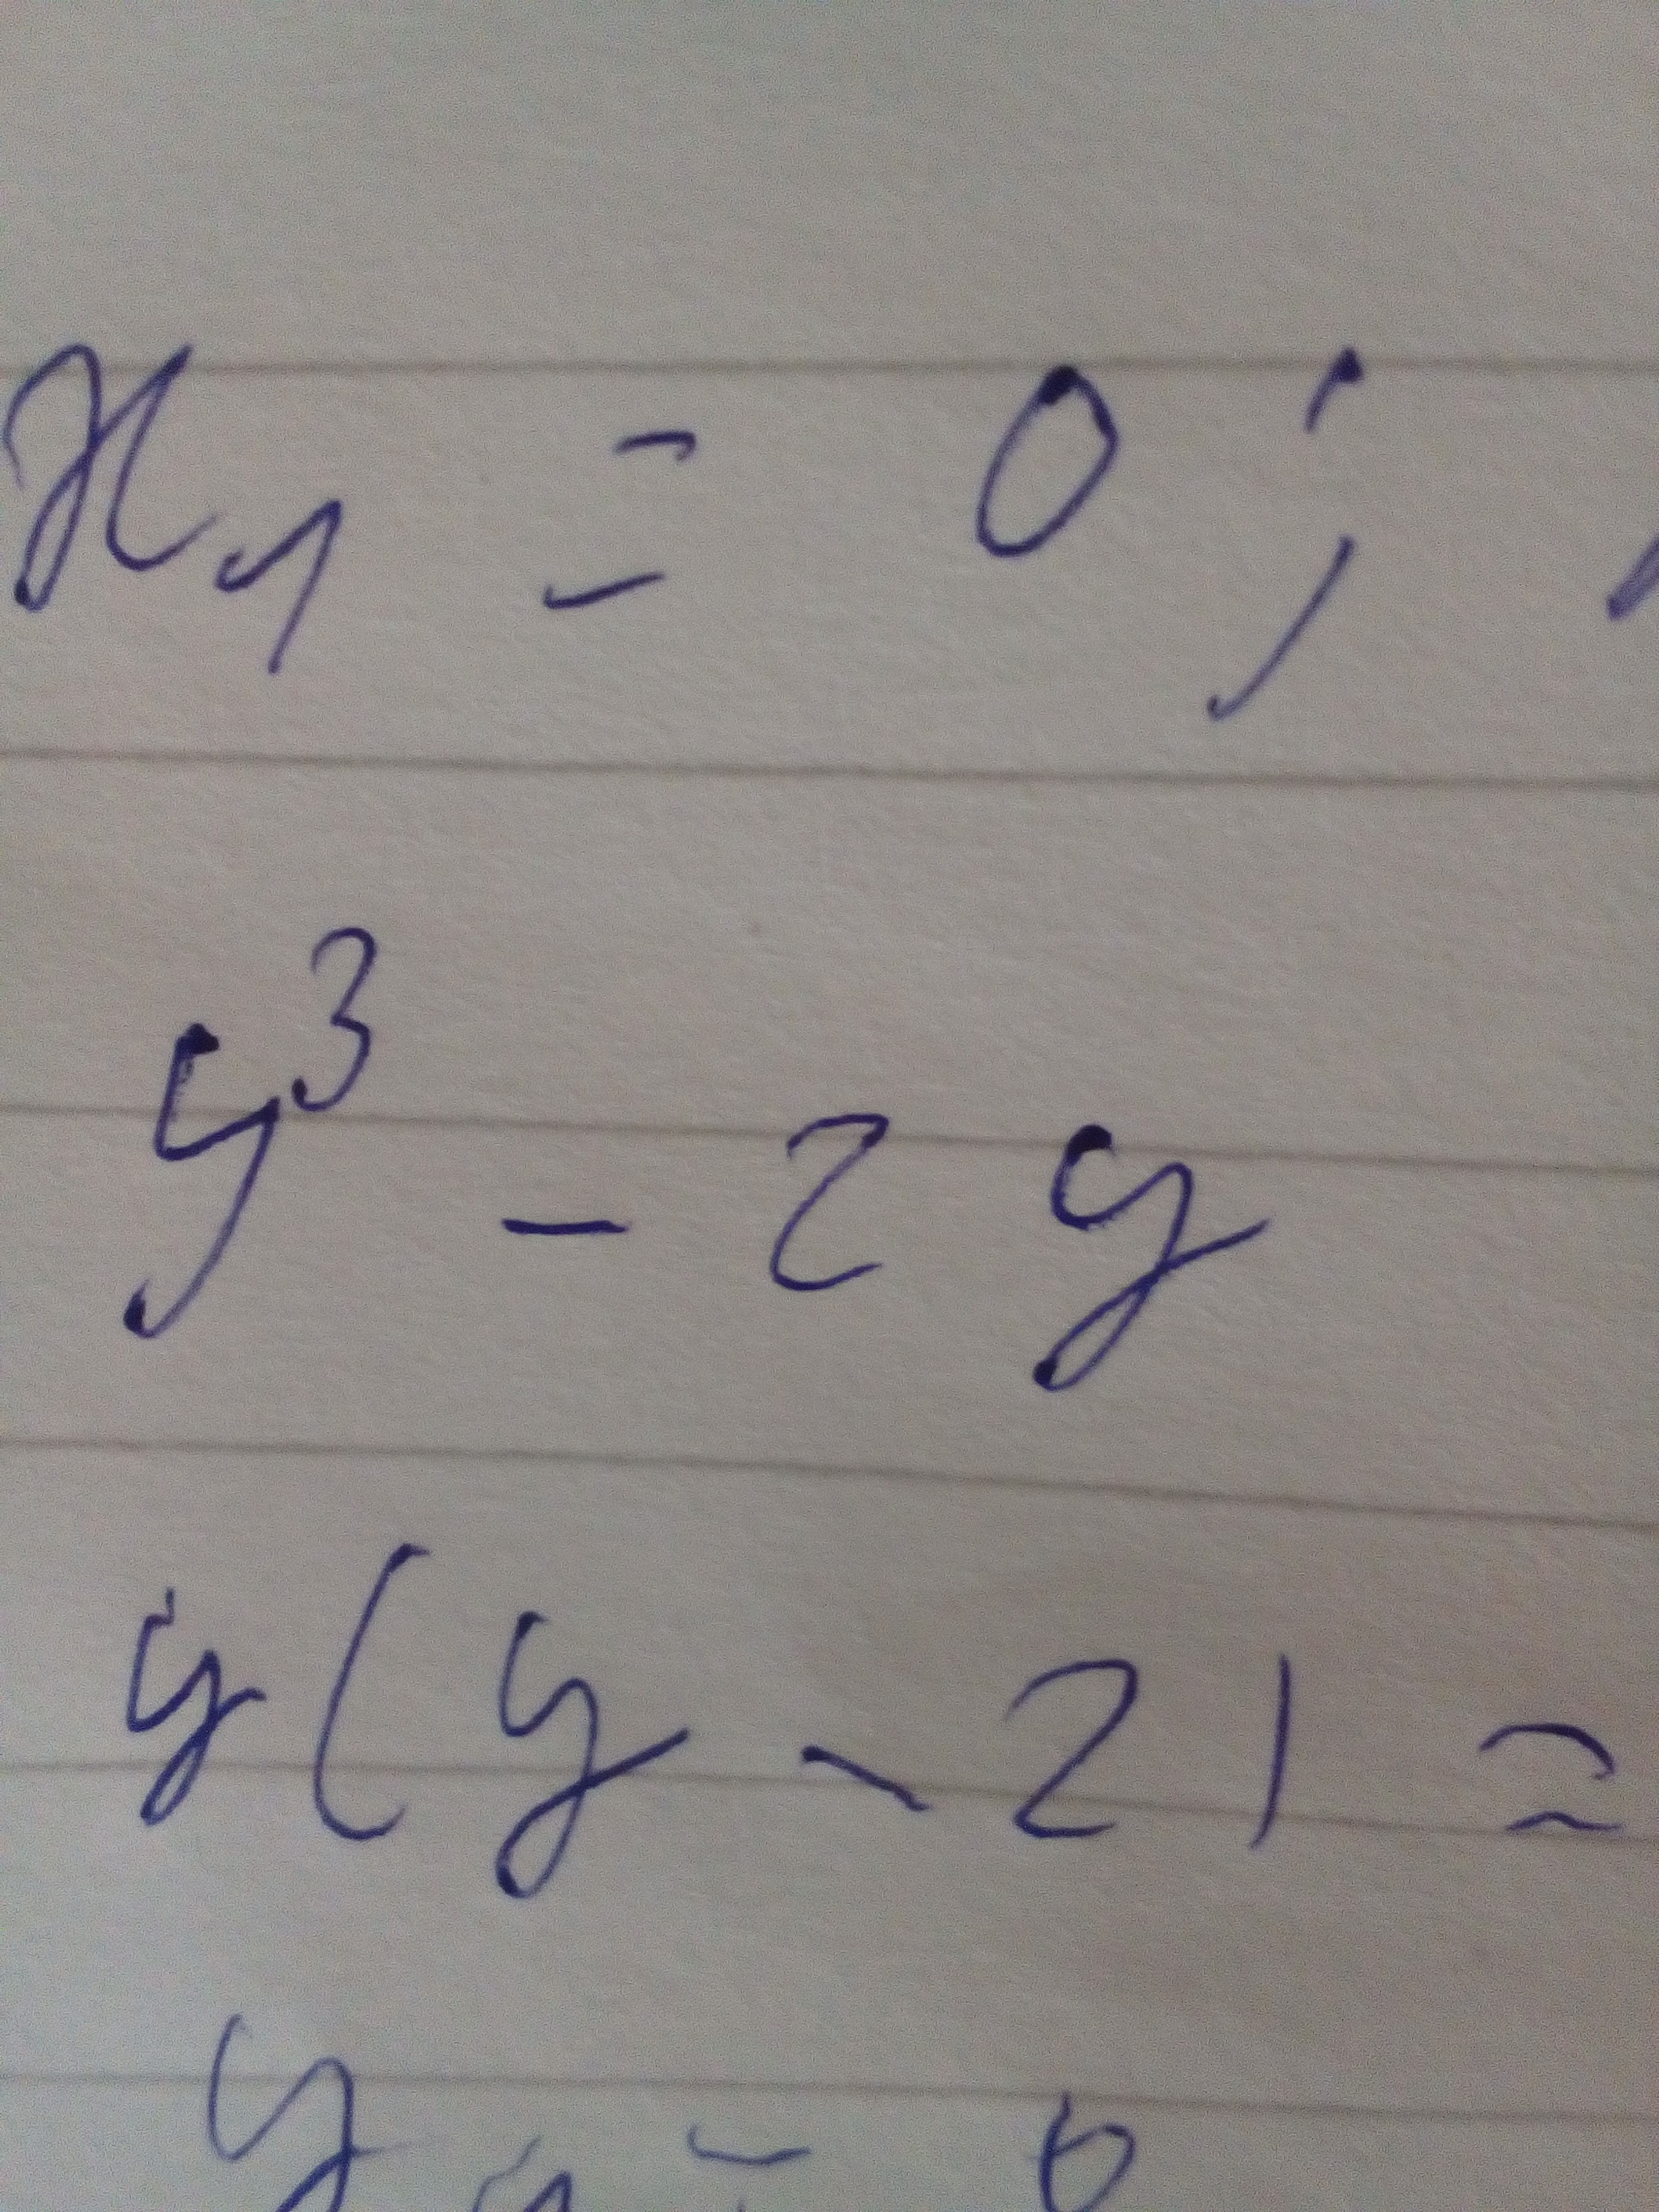 x₁ = 0;
y³ - 2y
y(y - 2) =
y₁ = 0